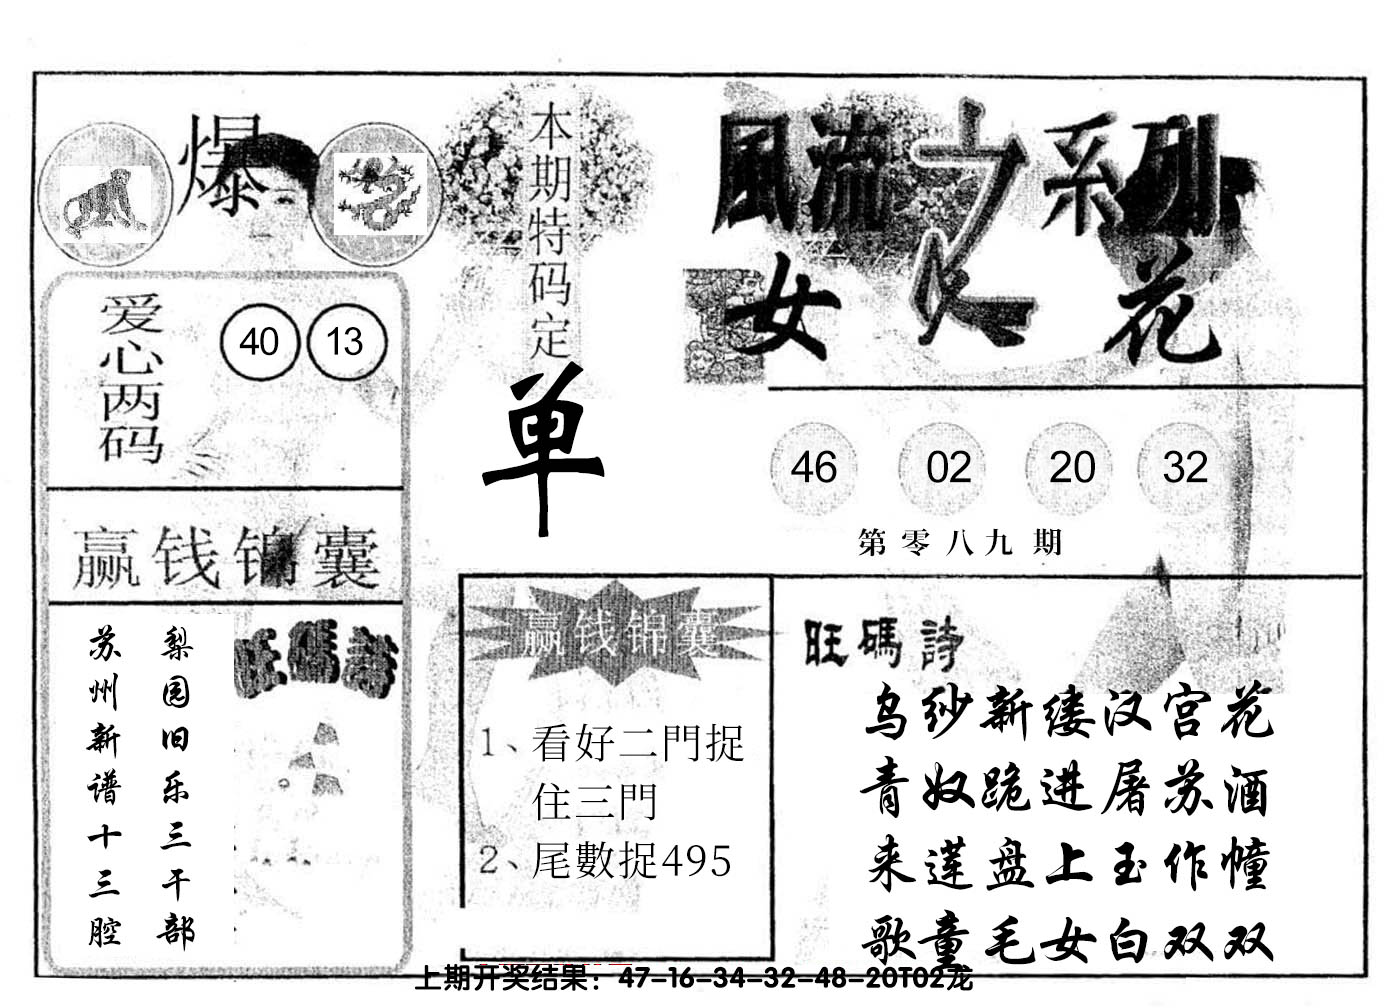 爆
本期特码定
单
風流之系列
女人花
爱心两码
40 13
46 02 20 32
第零八九期
赢钱锦囊
旺碼詩
梨园旧乐三千部
苏州新谱十三腔
赢钱锦囊
1、看好二門捉
住三門
2、尾數捉495
旺碼詩
乌纱新缕汉宫花
青奴跪进屠苏酒
来莲盘上玉作幢
歌童毛女白双双
上期开奖结果：47-16-34-32-48-20T02龙